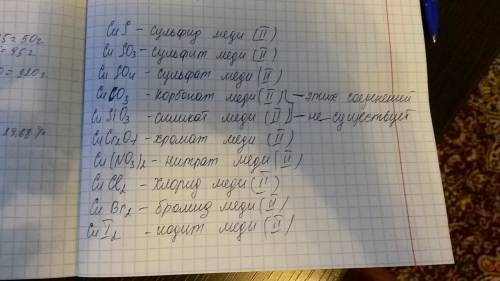 5 = 50г
= 95г
CuS - сульфид меди (II)
CuSO3 - сульфит меди (II)
CuSO4 - сульфат меди (II)
CuCO3 - корбонат меди (II) - этих соединений
CuSiO3 - силикат меди (II) - не существует
CuCr2O7 - хромат меди (II)
Cu(NO3)2 - нитрат меди (II)
CuCl2 - хлорид меди (II)
CuBr2 - бромид меди (II)
CuI2 - иодит меди (II)